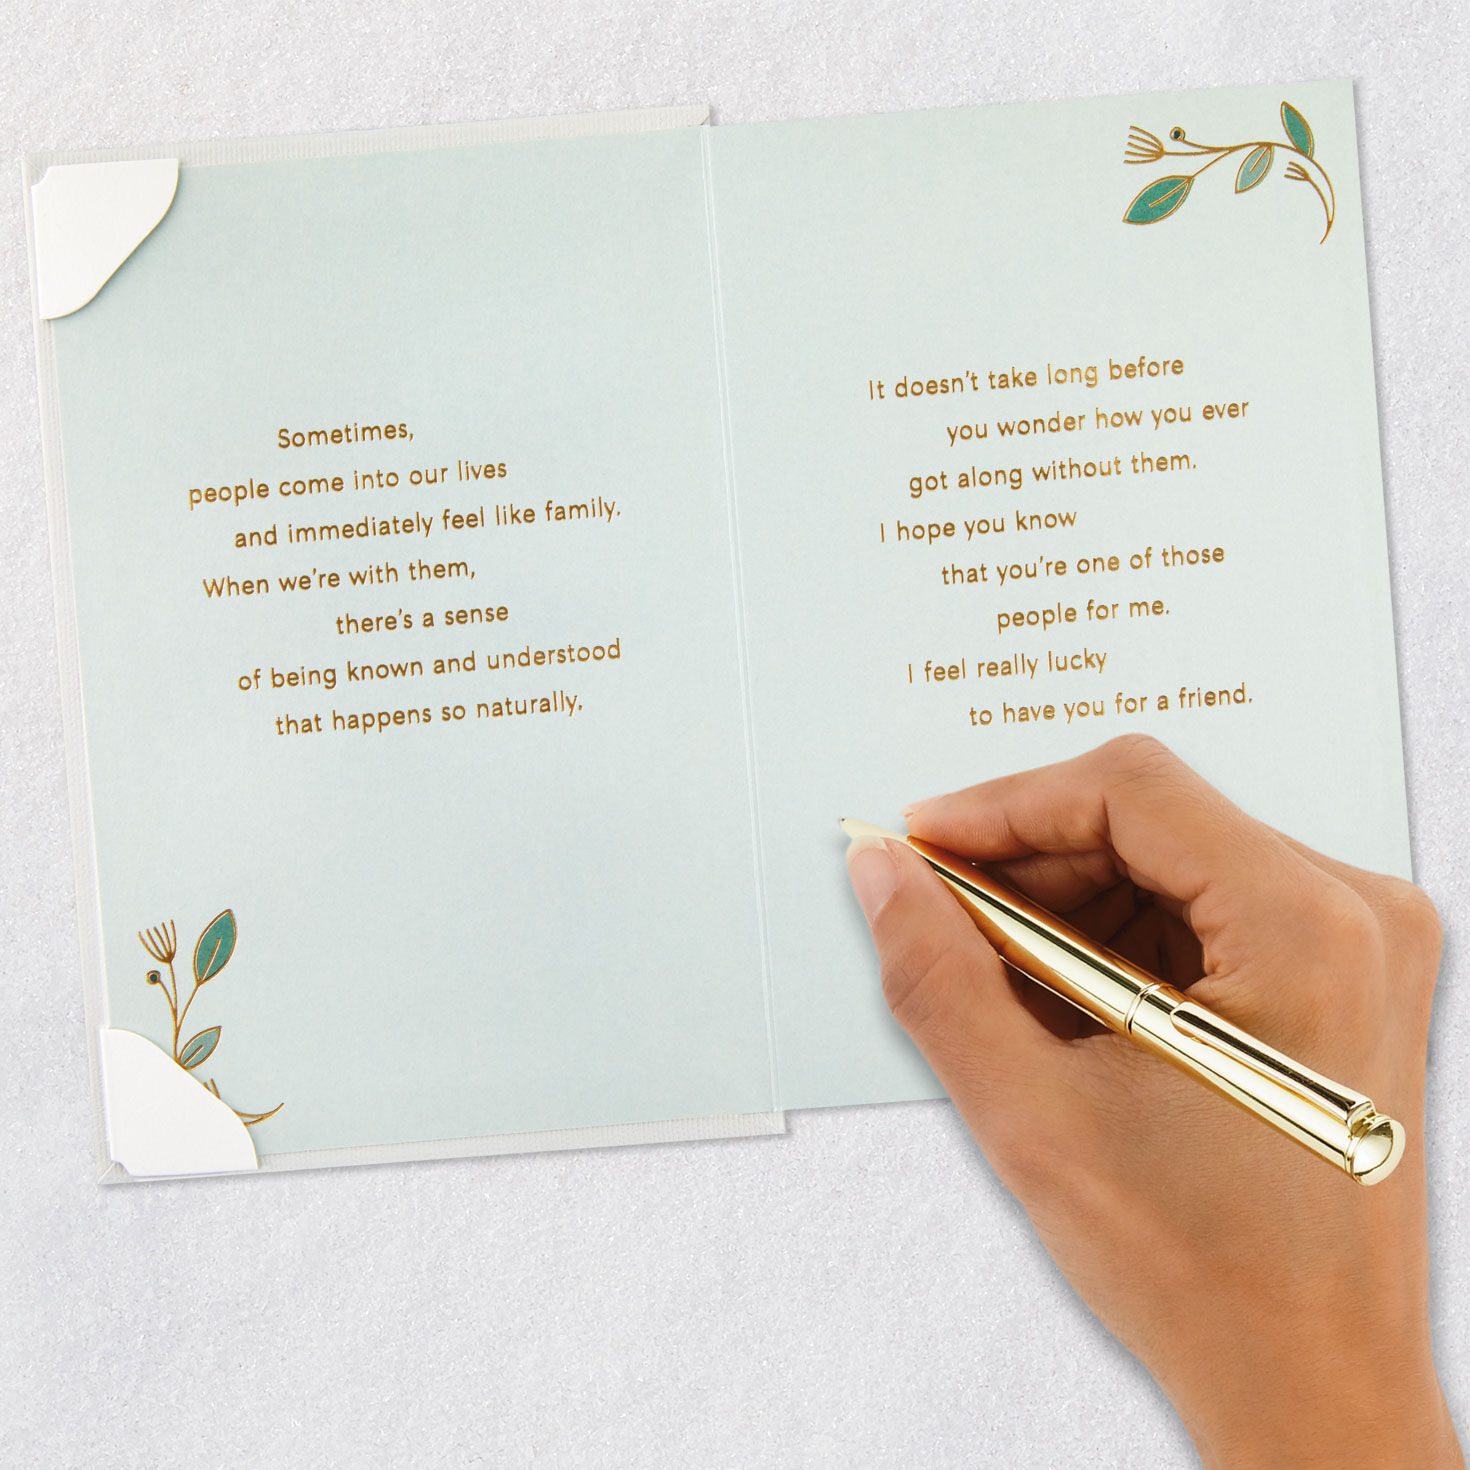 Sometimes,
people come into our lives
and immediately feel like family.
When we're with them,
there's a sense
of being known and understood
that happens so naturally.
It doesn't take long before
you wonder how you ever
got along without them.
I hope you know
that you're one of those
people for me.
I feel really lucky
to have you for a friend.